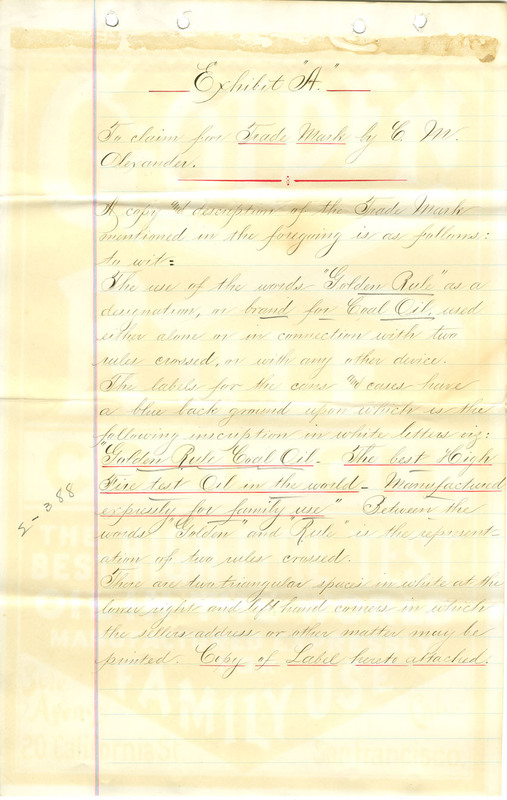 Exhibit "A."
To claim for Trade Mark by C. M.
Alexander.
A copy and description of the Trade Mark
mentioned in the foregoing is as follows:
to wit:
The use of the words "Golden Rule" as a
designation, or brand for Coal Oil, used
either alone or in connection with two
rules crossed, or with any other device.
The labels for the cans and cases have
a blue back ground upon which is the
following inscription in white letters viz:
"Golden Rule Coal Oil - The best High
Fire test Oil in the world - Manufactured
expressly for family use" Between the
words "Golden" and "Rule" is the represent=
ation of two rules crossed.
There are two triangular spaces in white at the
lower right and left hand corners in which
the sellers address or other matter may be
printed. Copy of Label hereto attached:
2-388
THE
BES
MA
FAMILY USE
20 California St.
San Francisco